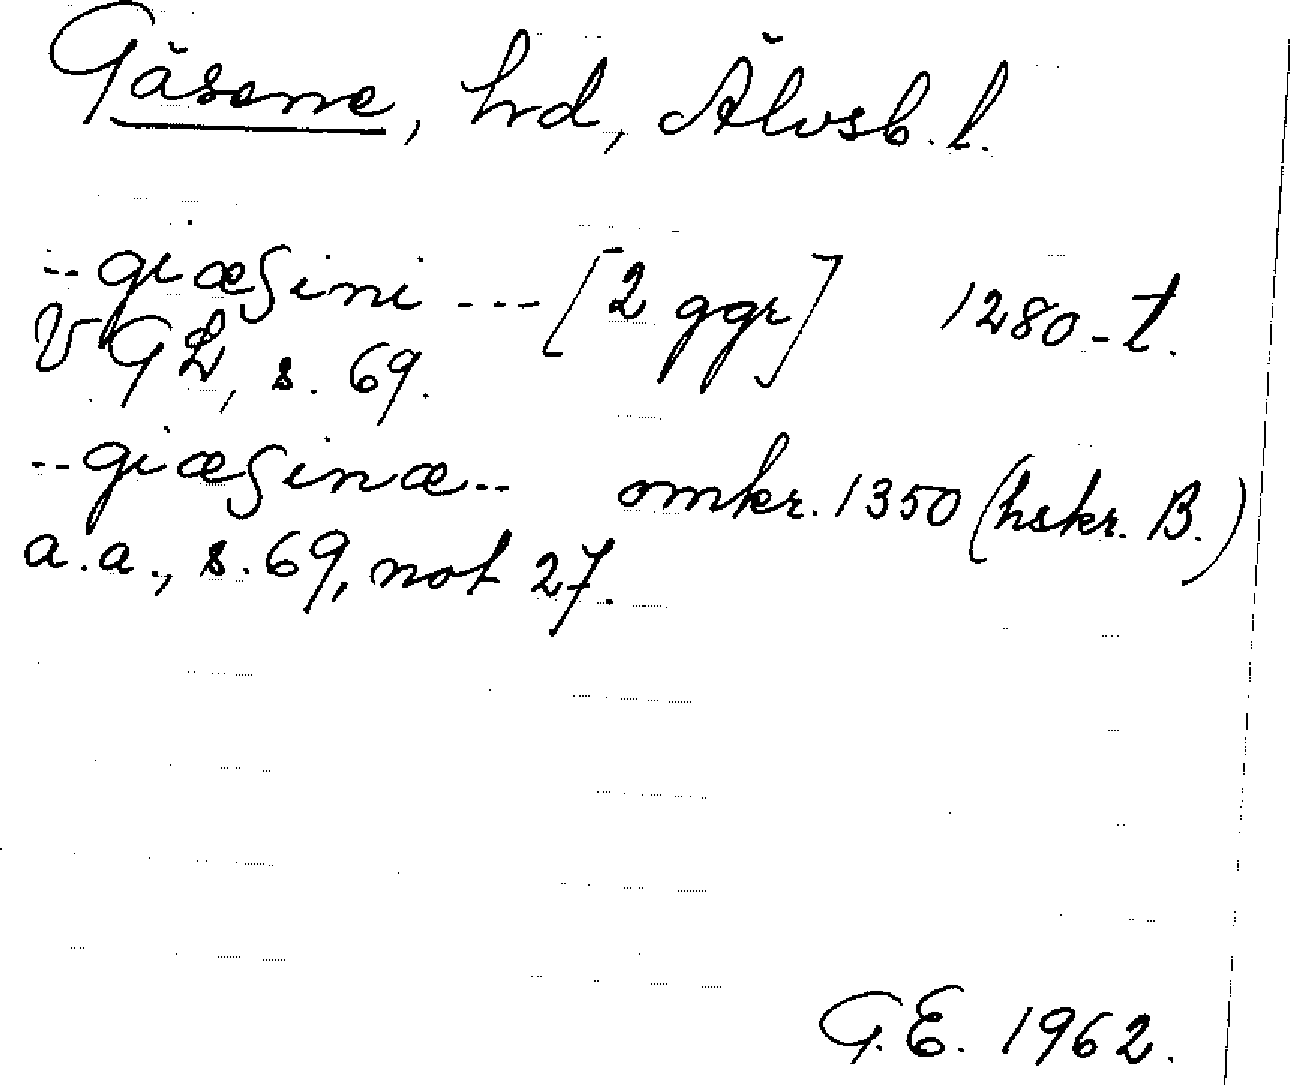 Gäsene, hrd, Älvsb. l.
-- giæſini --- [2 ggr] 1280-t.
VGL, s. 69.
-- giæſinæ -- omkr. 1350 (hskr. B.)
a.a., s. 69, not 27.
G.E. 1962.